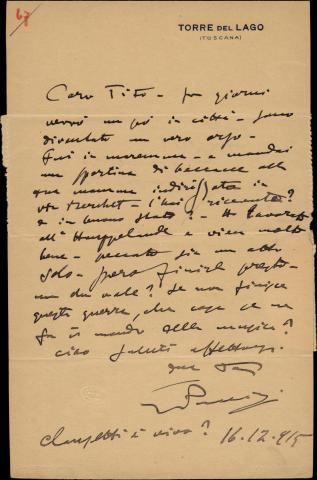 67
TORRE DEL LAGO
(TOSCANA)
Caro Tito - fra giorni
verrò un pò in città - sono
diventato un vero orso -
Fui in maremma - e mandai
una sportina di beccacce alla
tua mamma indirizzata in
via Berchet - l'hai ricevuta?
e in buono stato? - Ho lavorato
all' e viene molto
bene - peccato sia un atto
solo - spero finirla presto -
ma che vale? Se non finisce
questa guerra, che cosa se ne
fa il mondo della musica?
ciao saluti affettuosi
tuo
GPuccini
Clausetti è vivo? 16.12.915